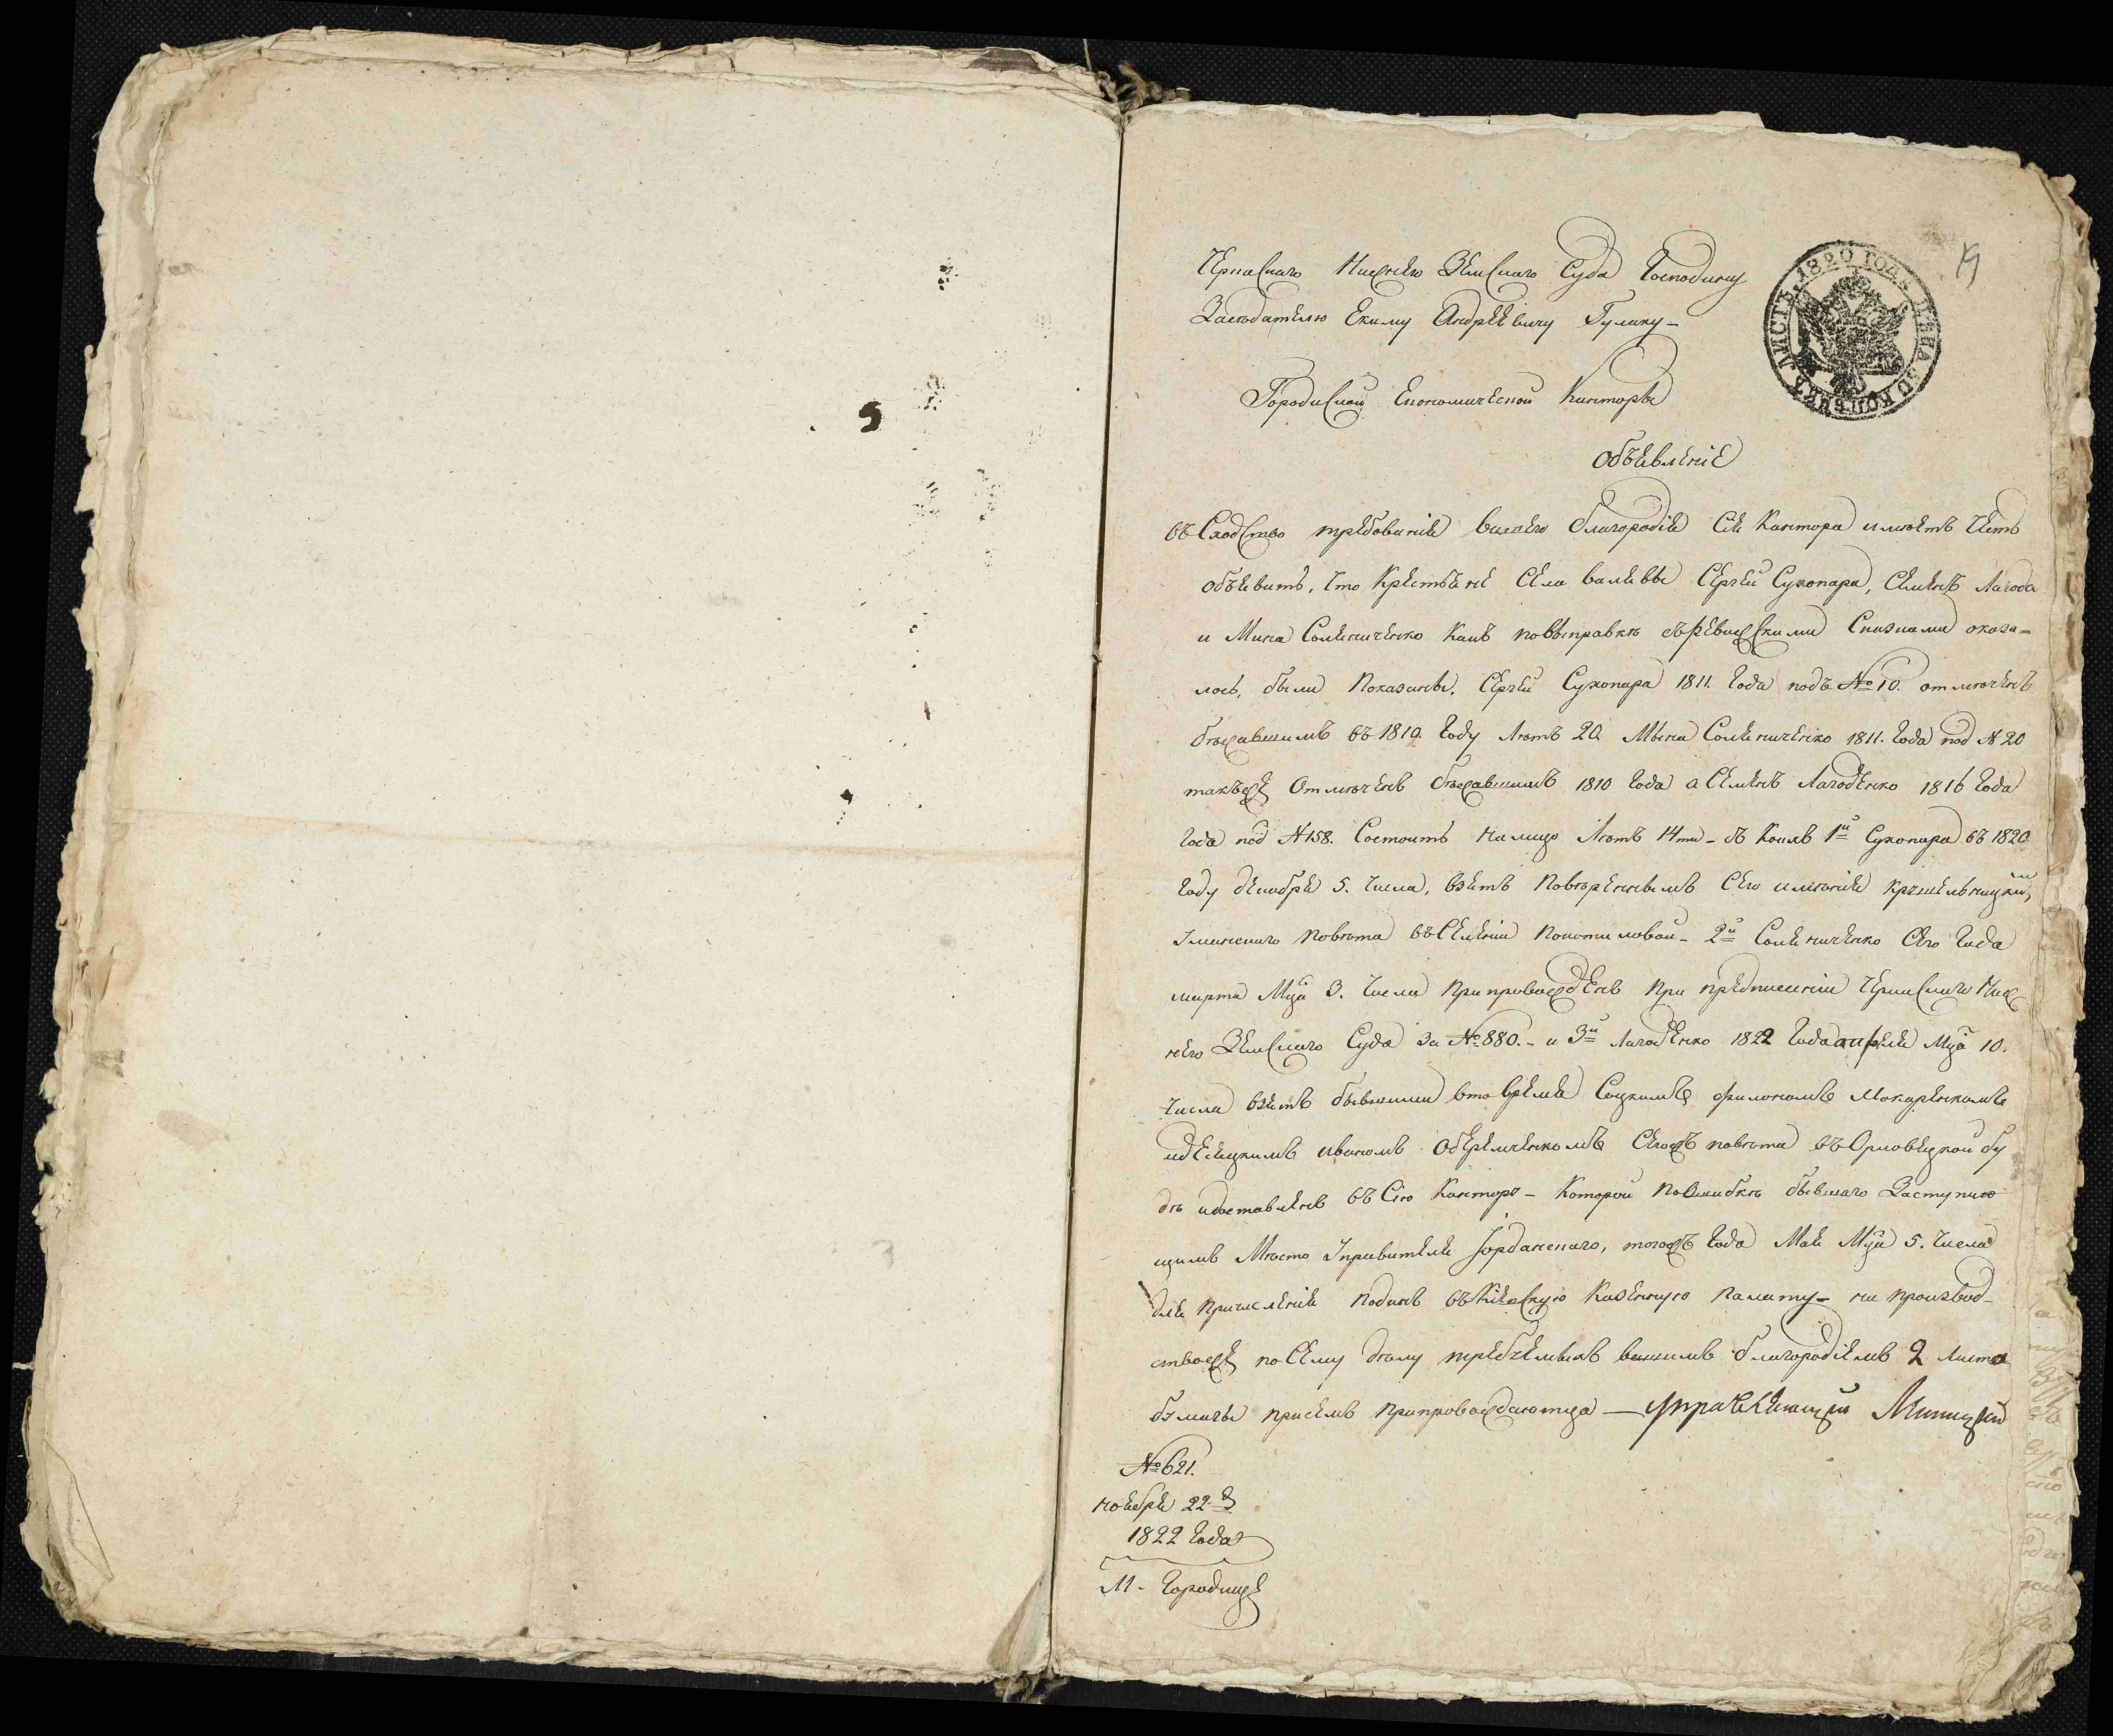 19
1820 ГОДА ЦѢНА 50 КОПѢЕКЪ ЛИСТЪ
Черкаскаго Нижнего Земскаго Суда Господину
Заседателю Екиму Андреевичу Гулаку -
Городиской Економической Канторы
Объевление
въ Сходство требование вашего благородие Сие Кантора имеетъ честь
объевить, что Крестьяне Села валевы Сергей Сухопара, Семенъ Лагода
и Мина Солениченко какъ повыправке съ Ревижскими Сказками оказа-
лось, были Показаны, Сергей Сухопара 1811. Года подъ №10. отмеченъ
бежавшимъ въ 1810. Году Летъ 20. Мына Соленичеико 1811. Года под №20
такъже Отмеченъ бежавшимъ 1810 Года а Семенъ Лагоденко 1816 Года
Года под №158. Состоитъ на лицо Летъ 14ти - съ Коихъ 1й Сухопара въ 1820
Году декабре 5. Числа, взетъ Поверенным Сего имение
Уманскаго Повета въ Селении - 2й Соленичеико Сего Года
марта Мца 3. Числа Припровожденъ При предписании Черкаскаго Ниж
него Земскаго Суда За №880. - и 3й Лагоденко 1822 Года апреле Мца 10.
числа взетъ бывшими вто времие Соцкимъ Филономъ Макаренкомъ
идесецкимъ иваномъ Обереиченкомъ Сегожъ повета въ Орловецкой бу
де идоставленъ въ Сию Кантору - Которой По Ошибке бывшаго Заступаю
щимъ Место Управителя Іорданскаго, тогожъ Года Мае Мца 5. Числа
дле Причисление Поданъ въ Киевскую Казенную Палату - на производ-
ствоже по Сему делу вашимъ благородиемъ 2 Листа
бумаги присемъ Припровождаютца — Управляющий
№621.
ноебре 22 д
1822 Года
М. Городище